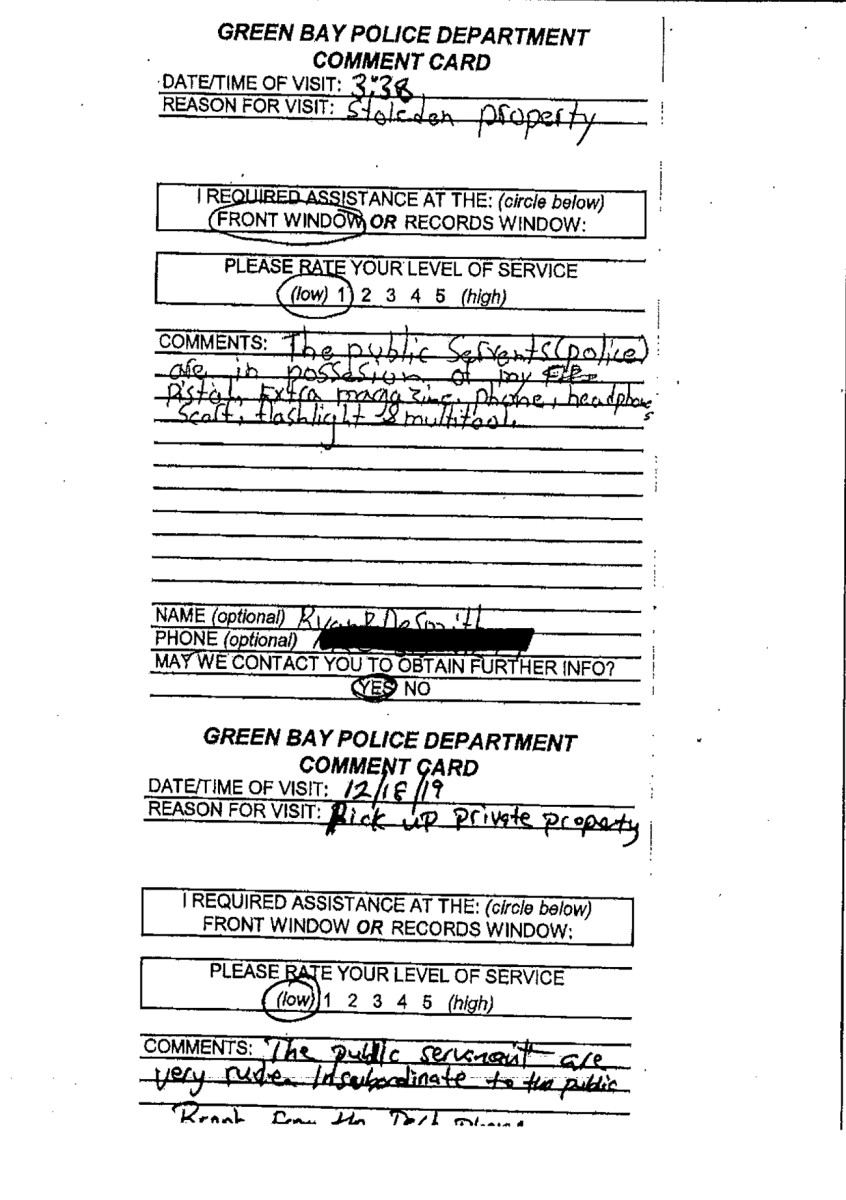 GREEN BAY POLICE DEPARTMENT
COMMENT CARD
DATE/TIME OF VISIT: 3:38
REASON FOR VISIT: Stoleden property
I REQUIRED ASSISTANCE AT THE: (circle below)
FRONT WINDOW OR RECORDS WINDOW:
PLEASE RATE YOUR LEVEL OF SERVICE
(low) 1 2 3 4 5 (high)
COMMENTS: The public Servents (police)
are in possesion of my
Pistol, Extra magazine, phone, headphones
Scarf, flashlight & multitool.
NAME (optional) Ryan P DeSmith
PHONE (optional)
MAY WE CONTACT YOU TO OBTAIN FURTHER INFO?
YES NO
GREEN BAY POLICE DEPARTMENT
COMMENT CARD
DATE/TIME OF VISIT: 12/18/19
REASON FOR VISIT: Pick up private property
I REQUIRED ASSISTANCE AT THE: (circle below)
FRONT WINDOW OR RECORDS WINDOW:
PLEASE RATE YOUR LEVEL OF SERVICE
(low) 1 2 3 4 5 (high)
COMMENTS: The public are
very rude. Insubordinate to the public